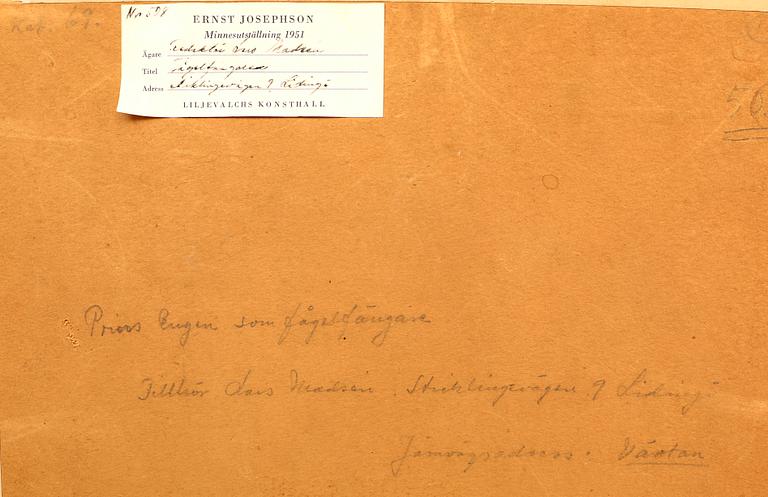 Kat. 69.
No 579
ERNST JOSEPHSON
Minnesutställning 1951
Ägare Redaktör Lars Madsen
Titel Fågelfångaren
Adress Sticklingevägen 9 Lidingö
LILJEVALCHS KONSTHALL
Prins Eugen som fågelfängare
Tillhör Lars Madsen. Sticklingevägen 9 Lidingö
Järnvägsadress. Värtan